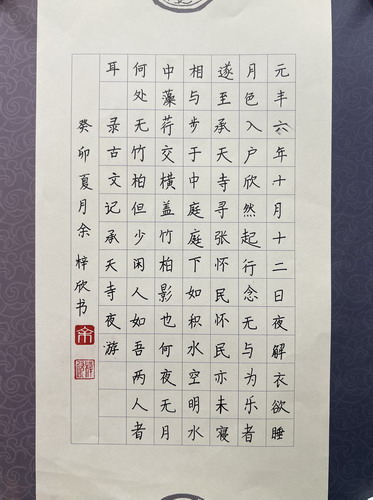 元丰六年十月十二日夜解衣欲睡
月色入户欣然起行念无与为乐者
遂至承天寺寻张怀民怀民亦未寝
相与步于中庭庭下如积水空明水
中藻荇交横盖竹柏影也何夜无月
何处无竹柏但少闲人如吾两人者
耳 录古文记承天寺夜游
癸卯夏月余梓欣书